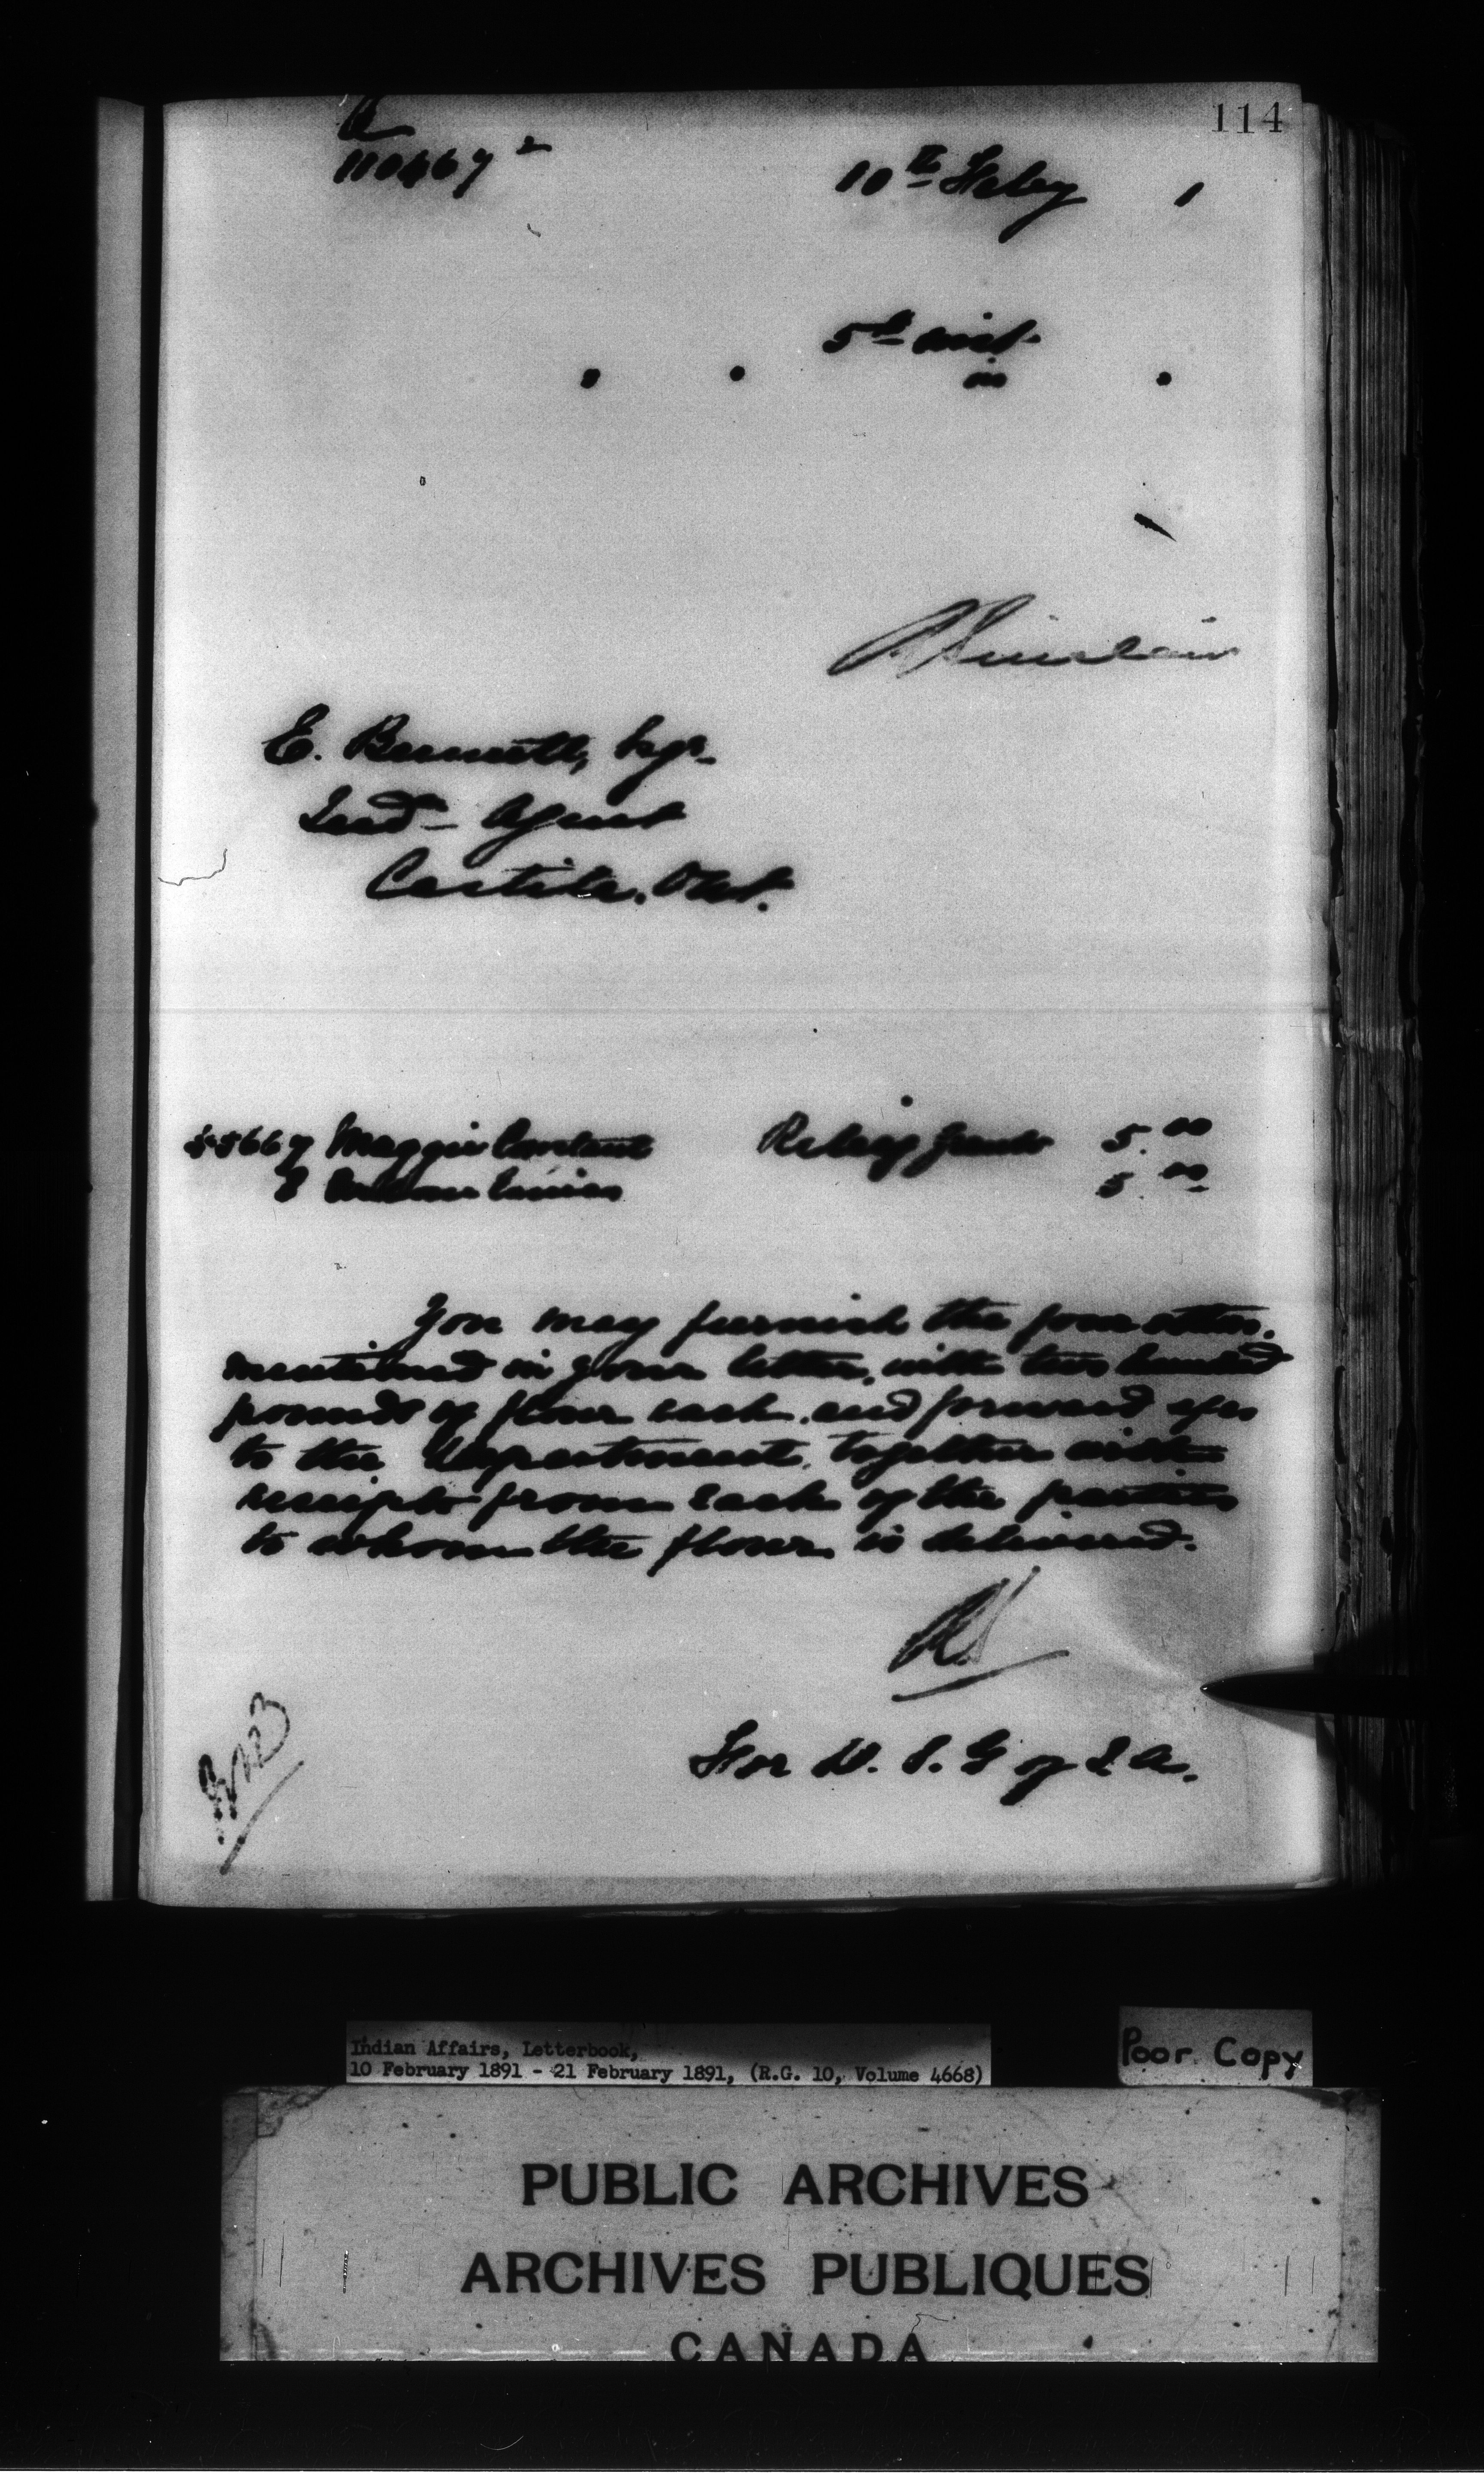 114
110467²
10th Feby 1
5th inst.
in
R Sinclair
E. Bennett, Esqr.
Ind. Agent
Ont.
55667 Maggie Constant Relief grant 5.00
8 5.00
You may furnish the four others
mentioned in your letter, with two hundred
pounds of flour each, and forward a/cs
to the Department, together with
receipts from each of the parties
to whom the flour is delivered.
R.S.
For D. S. G of I. A.
Indian Affairs, Letterbook,
10 February 1891 - 21 February 1891, (R.G. 10, Volume 4668)
Poor Copy
PUBLIC ARCHIVES
ARCHIVES PUBLIQUES
CANADA